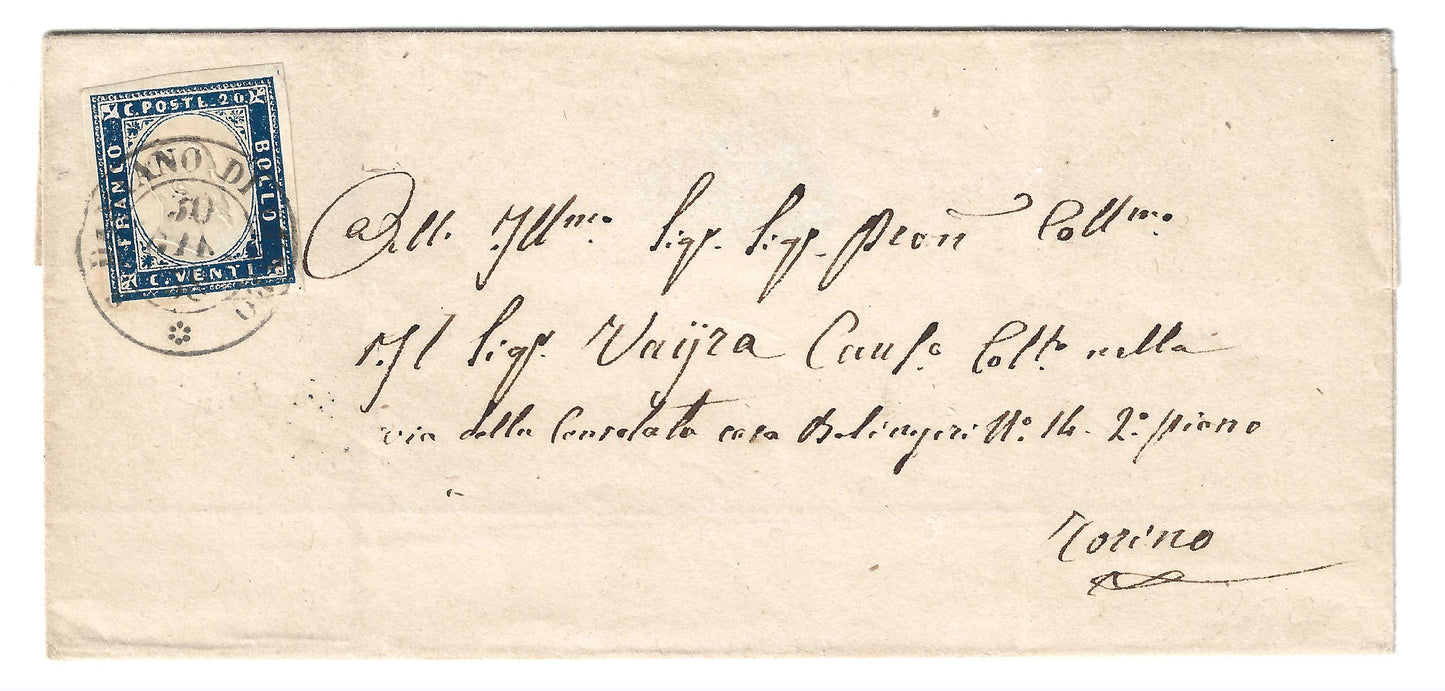 C. POSTE. 20
FRANCO
BOLLO
C. VENTI
ANO DI
30
GIU
All. Ill.mo Sig.r Sig.r Pron Coll.mo
Il Sig.r Vayra Caus.o Coll.o nella
via della Consolata casa Belingeri N.o 14. 2.o piano
Torino